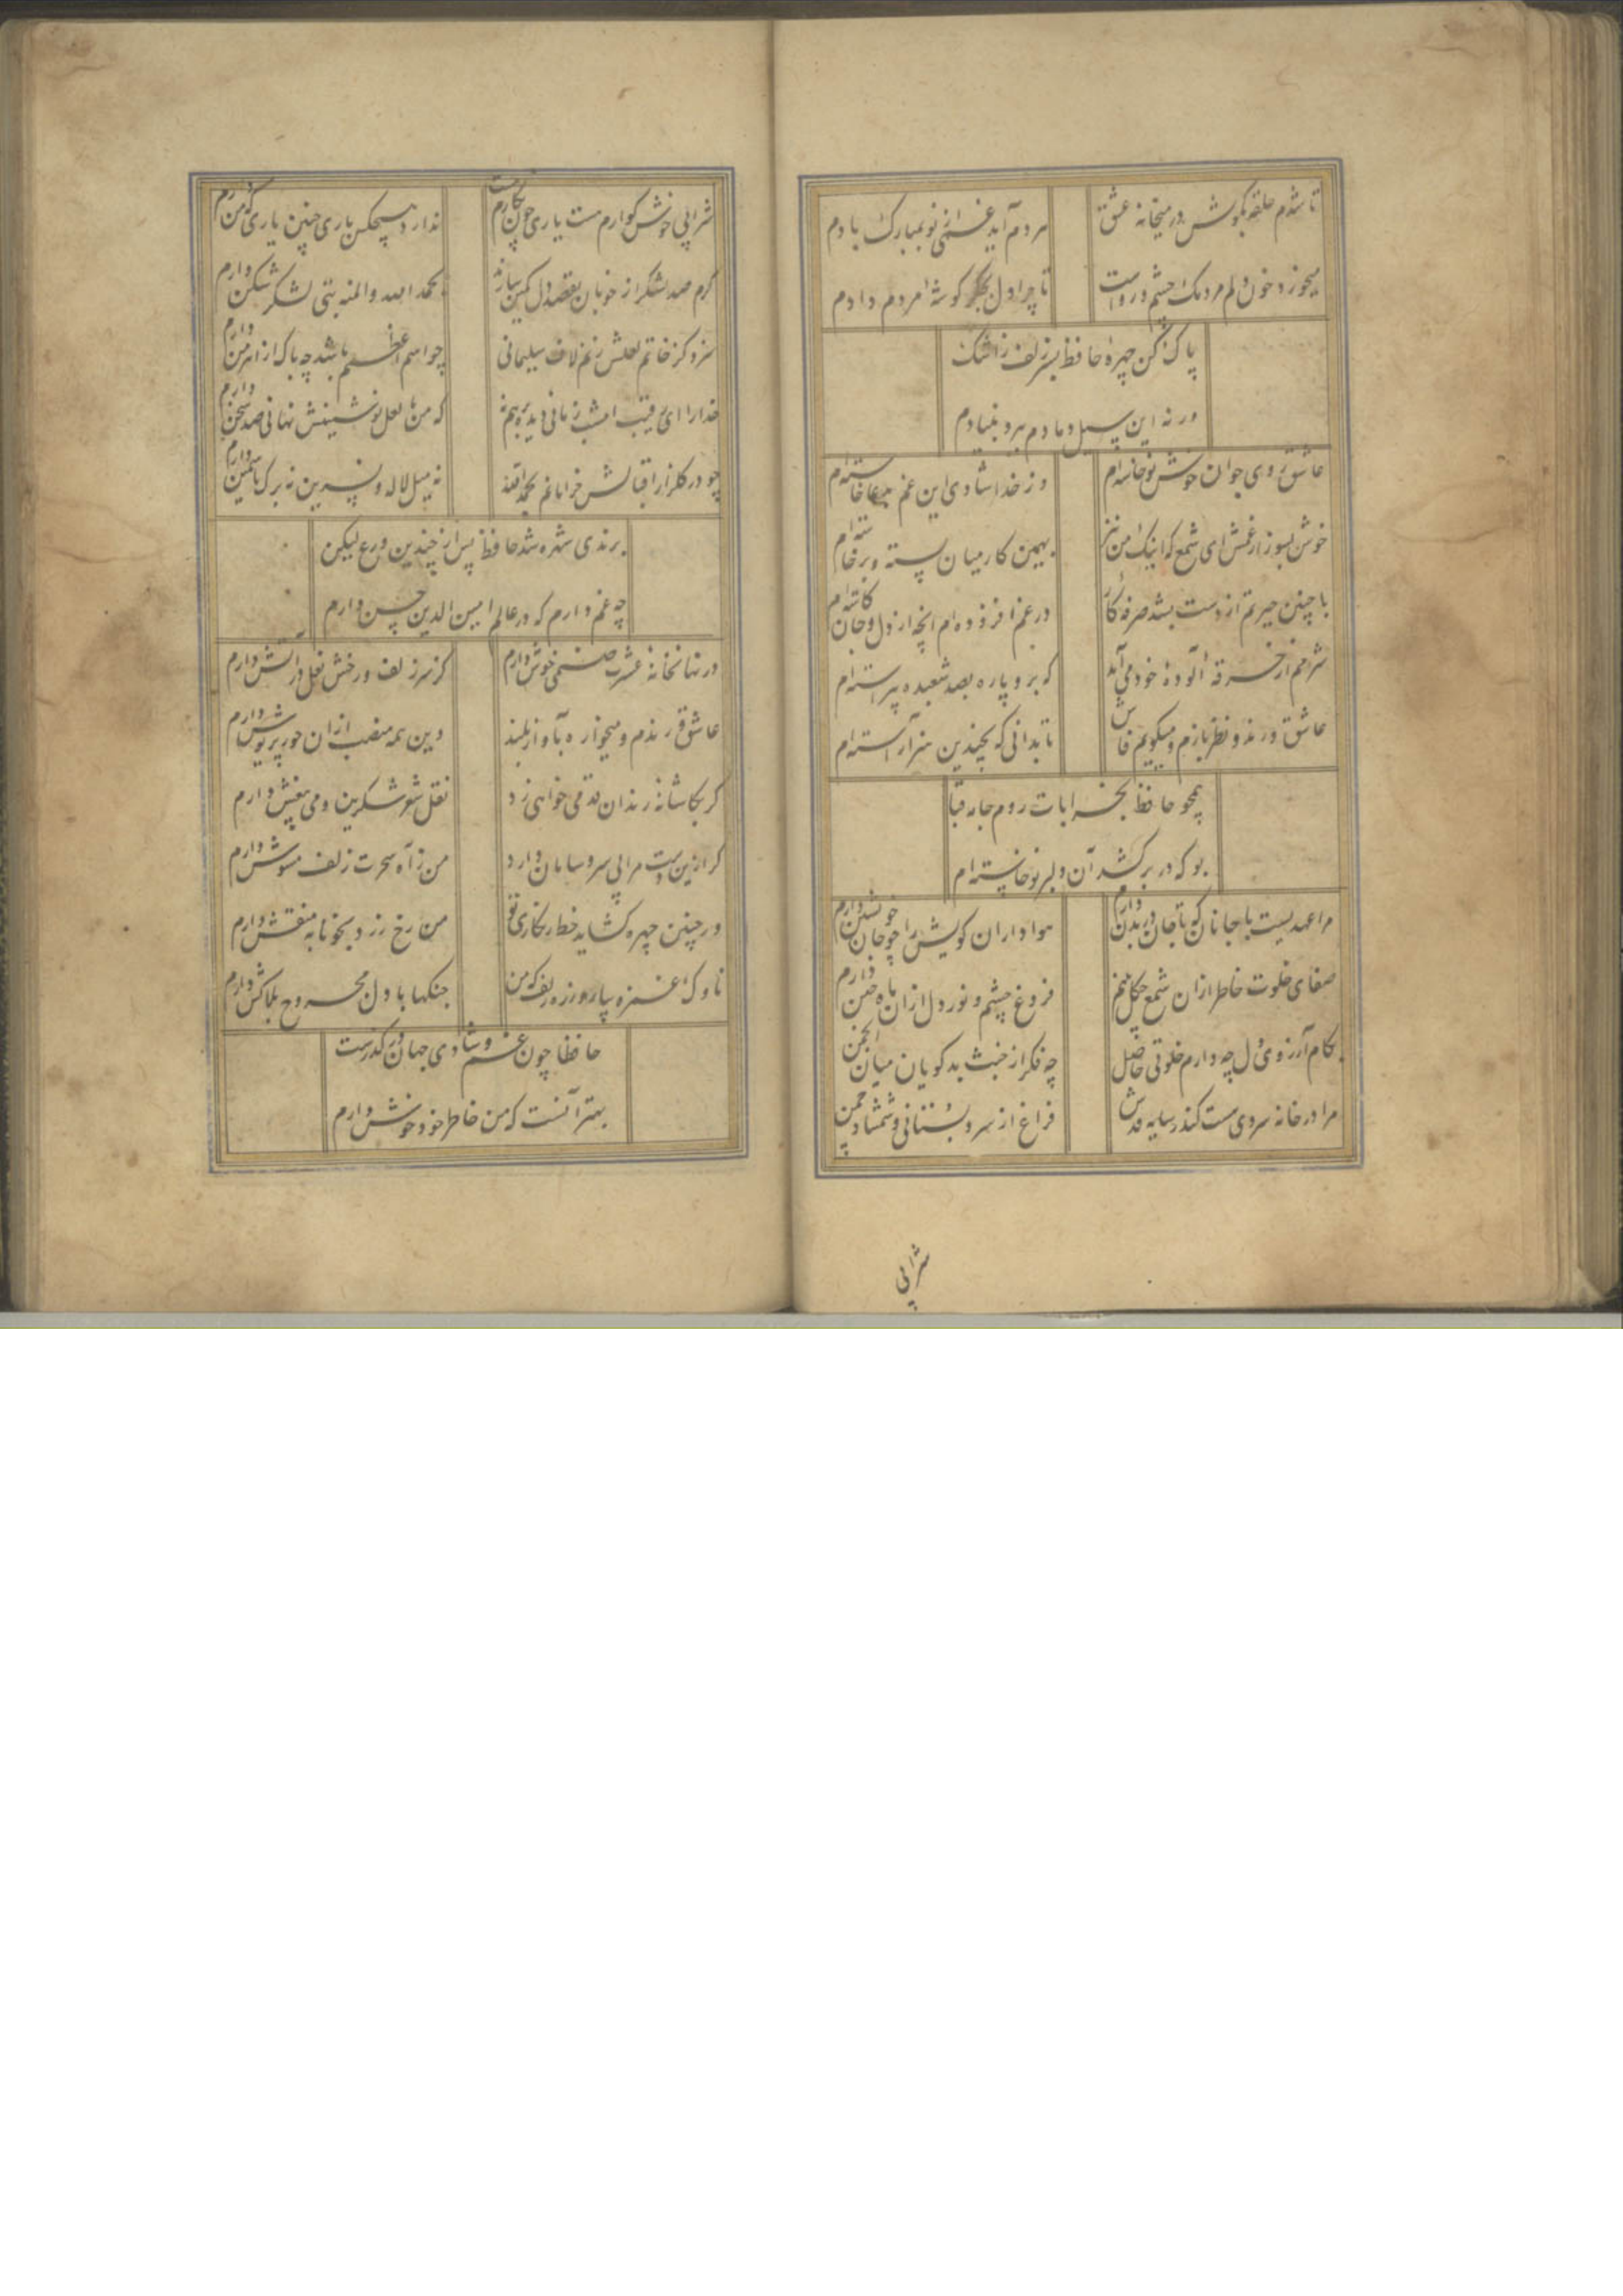 تا شدم حلقه بکوش در میخانه عشق
مردم آید غمی از نو بمبارک بادم
میخورد خون دلم مردمک چشم و رواست
تا چرا دل بجکر کوشهٔ مردم دادم
پاک کن چهرهٔ حافظ بسر زلف ز اشک
ورنه این سیل دمادم ببرد بنیادم
عاشق روی جوان خوش نوخاسته‌ام
وز خدا شادی این غم بدعا خاسته‌ام
خوش بسوز از غمش ای شمع که اینک من نیز
بهمین کار میان بسته و برخاسته‌ام
با چنین حیرتم از دست بشد صرفهٔ کار
در غم افزوده‌ام آنچه از دل و جان کاسته‌ام
شرمم از خرقه آلودهٔ خود می‌آید
که برو پاره بصد شعبده پیراسته‌ام
عاشق و رند و نظربازم و میکویم فاش
تا بدانی که بچندین هنر آراسته‌ام
همچو حافظ بخرابات روم جامه قبا
بو که در بر کشد آن دلبر نوخاسته‌ام
مرا عهدیست با جانان که تا جان در بدن دارم
هواداران کویش را چو جان خویشتن دارم
صفای خلوت خاطر از آن شمع چکل بینم
فروغ چشم و نور دل از آن ماه ختن دارم
بکام آرزوی دل چه دارم خلوتی حاصل
چه فکر از خبث بدکویان میان انجمن
مرا در خانه سروی هست کندر سایه قدش
فراغ از سرو بستانی و شمشاد چمن
شرابی
شرابی خوش کوارم هست یاری چون نکارم هست
ندارد هیچکس یاری چنین یاری که من دارم
کرم صد لشکر از خوبان بقصد دل کمین سازند
بحمد الله والمنه بتی لشکر شکن دارم
سزد کز خاتم لعلش زنم لاف سلیمانی
چو اسم اعظمم باشد چه باک از اهرمن دارم
خدا را ای رقیب امشب زمانی دیده برهم نه
که من با لعل نوشینش نهانی صد سخن دارم
چو در کلزار اقبالش خرامانم بحمد الله
نه میل لاله و نسرین نه برک یاسمین دارم
برندی شهره شد حافظ پس از چندین ورع لیکن
چه غم دارم که در عالم امین الدین حسن دارم
در نهانخانهٔ عشرت صنمی خوش دارم
کز سر زلف و رخش نعل در آتش دارم
عاشق و رندم و میخواره بآواز بلند
وین همه منصب از آن حور پریوش دارم
کر بکاشانهٔ رندان قدمی خواهی زد
نقل شعر شکرین و می بیغش دارم
کر ازین دست مرا بی سر و سامان دارد
من ز آه سحرت زلف مشوش دارم
ور چنین چهره کشاید خط زنکاری تو
من رخ زرد بخونابه منقش دارم
ناوک غمزه بیار و زره زلف که من
جنکها با دل مجروح بلاکش دارم
حافظا چون غم و شادی جهان در کذرست
بهتر آنست که من خاطر خود خوش دارم